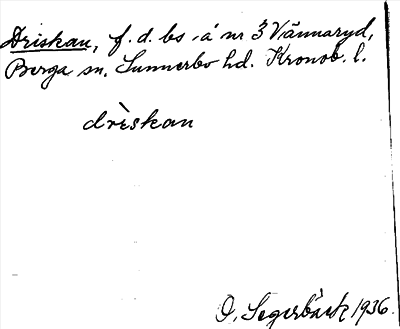 Driskan, f. d. bs å nr 3 Vännaryd,
Berga sn. Sunnerbo hd. Kronob. l.
drèskan
O. Segerbäck 1936.